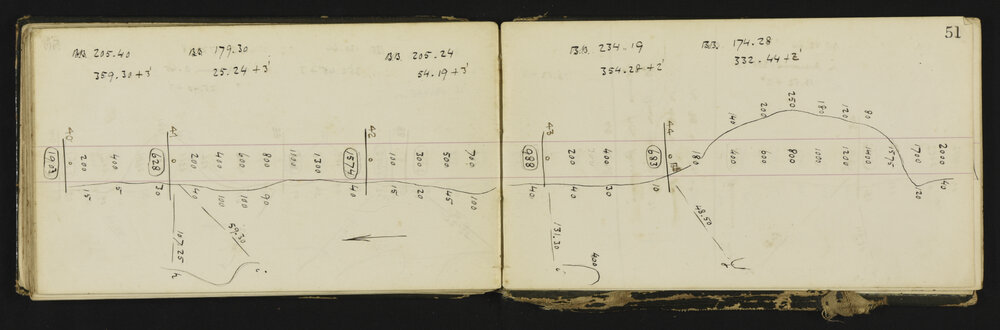 51
B.B. 205.40
359.30+3'
B.B. 179.30
25.24+3'
B.B. 205.24
54.19+3'
B.B. 234.19
354.28+2'
B.B. 174.28
332.44+2'
40 41 42 43 44
1907 0 200 400 628 0 200 400 600 800 1000 1300 1574 0 100 300 500 700
15 5 30 40 100 100 90 40 15 20 45 100
988 0 200 400 683 0 180 400 600 800 1000 1200 1400 1575 1700 2000
40 40 30 10 140 200 250 180 120 80 120 40
107.25
59.30
h
i
131.30
400
i
48.50